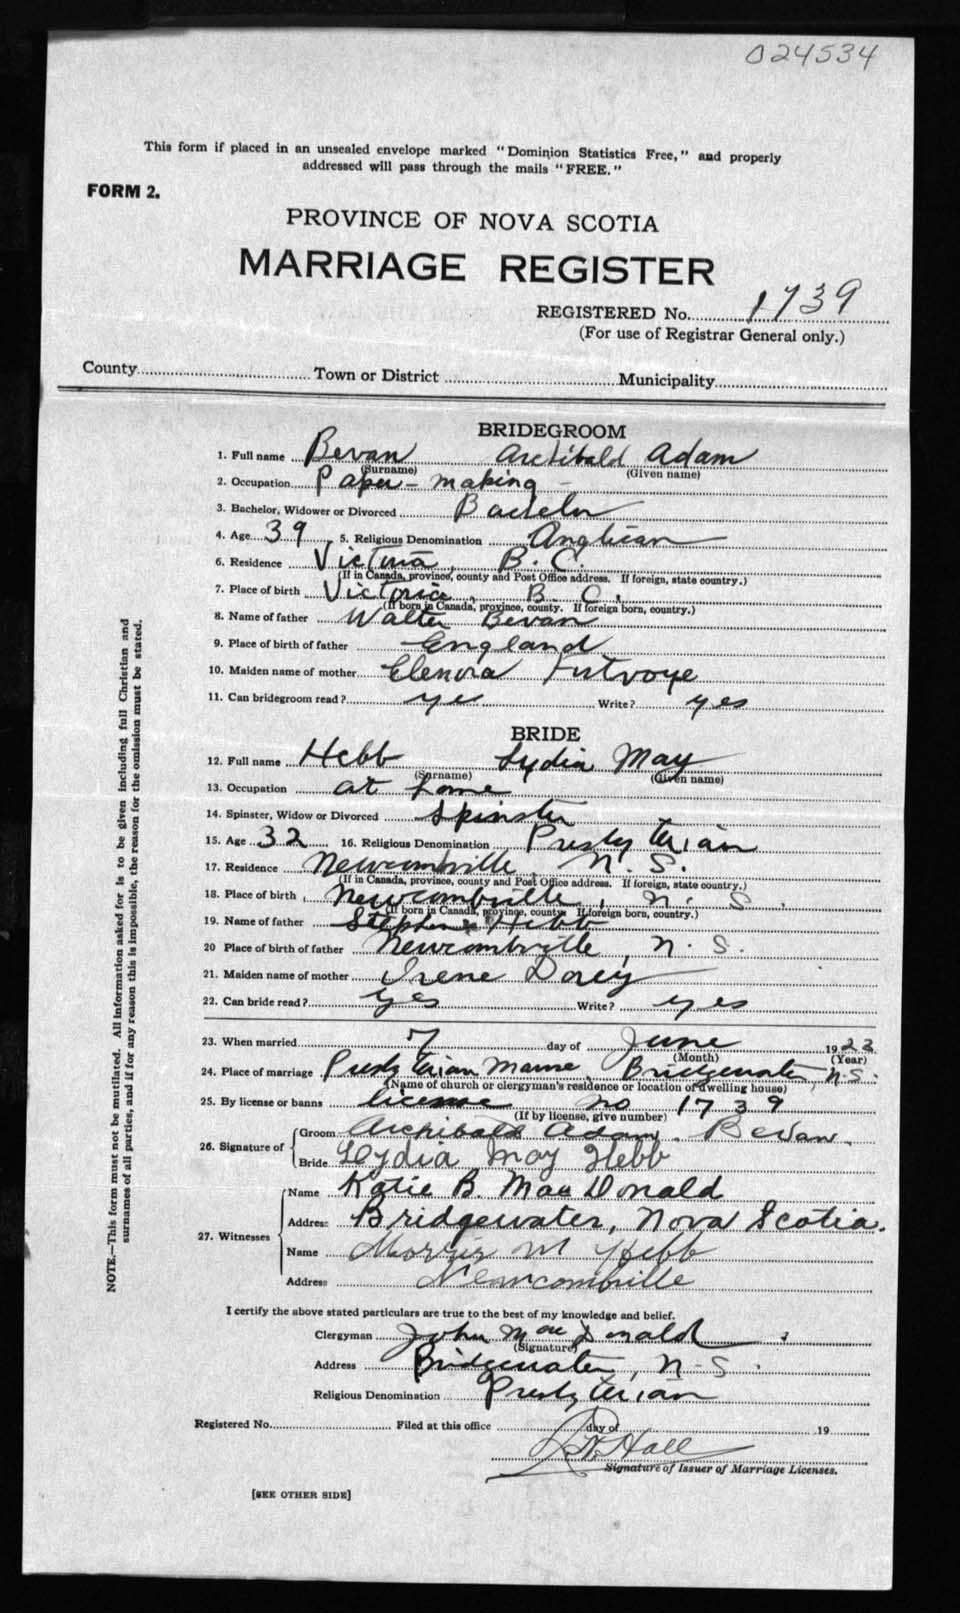 024534
This form if placed in an unsealed envelope marked "Dominion Statistics Free," and properly
addressed will pass through the mails "FREE."
FORM 2.
PROVINCE OF NOVA SCOTIA
MARRIAGE REGISTER
REGISTERED No. 1739
(For use of Registrar General only.)
County Town or District Municipality
BRIDEGROOM
1. Full name Bevan Archibald Adam
(Surname) (Given name)
2. Occupation Paper-making-
3. Bachelor, Widower or Divorced Bachelor
4. Age 39 5. Religious Denomination Anglican
6. Residence Victoria, B.C.
(If in Canada, province, county and Post Office address. If foreign, state country.)
7. Place of birth Victoria, B.C.
(If born in Canada, province, county. If foreign born, country.)
8. Name of father Walter Bevan
9. Place of birth of father England
10. Maiden name of mother Elenora Futvoye
11. Can bridegroom read? yes Write? yes
BRIDE
12. Full name Hebb Lydia May
(Surname) (Given name)
13. Occupation at home
14. Spinster, Widow or Divorced Spinster
15. Age 32 16. Religious Denomination Presbyterian
17. Residence Newcombville, N.S.
(If in Canada, province, county and Post Office address. If foreign, state country.)
18. Place of birth Newcombville, N.S.
(If born in Canada, province, county. If foreign born, country.)
19. Name of father Stephen Hebb
20 Place of birth of father Newcombville, N.S.
21. Maiden name of mother Irene Dorey
22. Can bride read? yes Write? yes
23. When married 7 day of June 1923
(Month) (Year)
24. Place of marriage Presbyterian Manse, Bridgewater, N.S.
(Name of church or clergyman's residence or location of dwelling house)
25. By license or banns license no 1739
(If by license, give number)
26. Signature of Groom Archibald Adam Bevan.
Bride Lydia May Hebb
27. Witnesses Name Katie B. MacDonald
Address Bridgewater, Nova Scotia.
Name Morris M Hebb
Address Newcombville
I certify the above stated particulars are true to the best of my knowledge and belief.
Clergyman John MacDonald
(Signature)
Address Bridgewater, N.S.
Religious Denomination Presbyterian
Registered No. Filed at this office day of 19
Hall
Signature of Issuer of Marriage Licenses.
[SEE OTHER SIDE]
NOTE.—This form must not be mutilated. All information asked for is to be given including full Christian and
surnames of all parties, and if for any reason this is impossible, the reason for the omission must be stated.